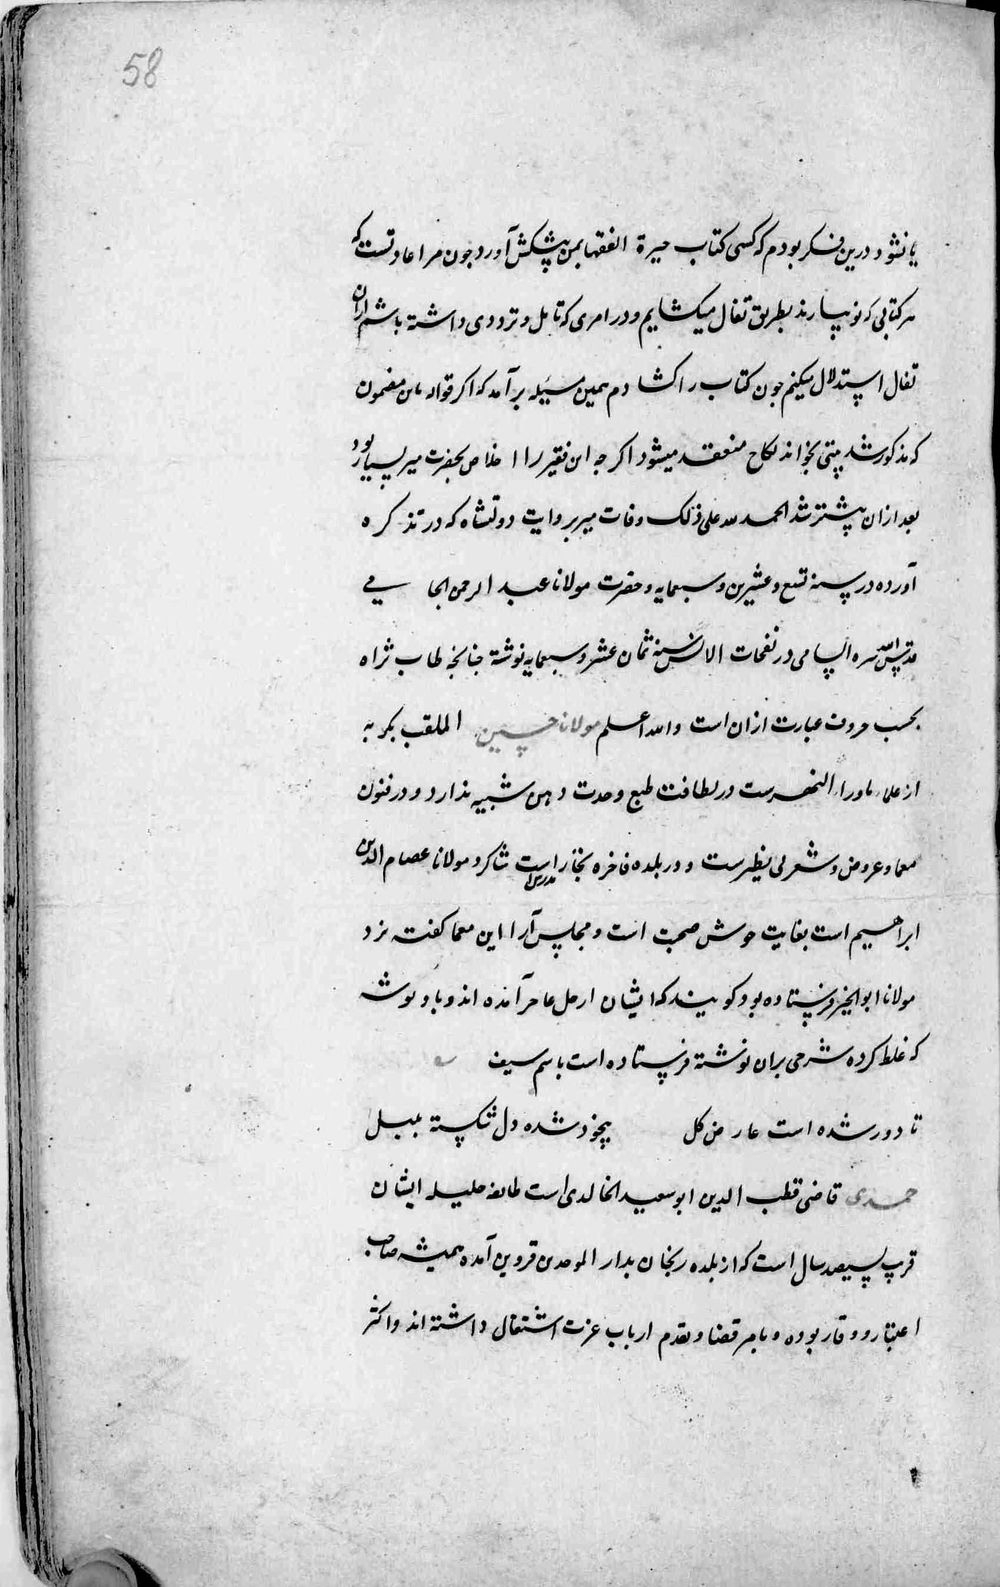 58
یا نشود درین فکر بودم که کسی کتاب حیرة الفقها بمن پیشکش آورد جون مرا عادتست که
هر کتابی که نو بیارند بطریق تفال میکشایم و در امری که تامل و ترددی داشته باشم ازان
تفال استدلال میکنم جون کتاب را کشادم همین مسیله برآمد که اکر قواله باین مضمون
که مذکور شد بیتی بخواند نکاح منعقد میشود اکرجه این فقیر را اخلاص بحضرت میر بسیار بود
بعد ازان پیشتر شد الحمد لله علی ذلک وفات میر بروایت دولتشاه که در تذکره
آورده در سنه تسع و عشرین و سبعمایه و حضرت مولانا عبد الرحمن الجامی
قدس الله سره السامی در نفحات الانس سنه ثمان عشر و سبعمایه نوشته جنانجه طاب ثراه
بحسب حروف عبارت ازان است والله اعلم مولانا حسین الملقب بکربه
از علماء ماوراء النهرست در لطافت طبع وحدت ذهن شبیه ندارد و در فنون
معما و عروض و شعر بی نظیرست و در بلده فاخره بخارا مدرس است شاکرد مولانا عصام الدین
ابراهیم است بغایت خوش صحبت است و مجلس آرا این معما کفته نزد
مولانا ابوالخیر فرستاده بود کویند که ایشان از حل عاجز آمده اند و باو نوشته
که غلط کرده شرحی بران نوشته فرستاده است باسم سیف
تا دور شده است عارض کل بیخود شده دل شکسته بلبل
حمدی قاضی قطب الدین ابو سعید الخالدی است طایفه جلیله ایشان
قرب سیصد سال است که از بلده زنجان بدار الموحدین قزوین آمده همیشه صاحب
اعتبار و وقار بوده و بامر قضا و تقدم ارباب عزت اشتغال داشته اند و اکثر